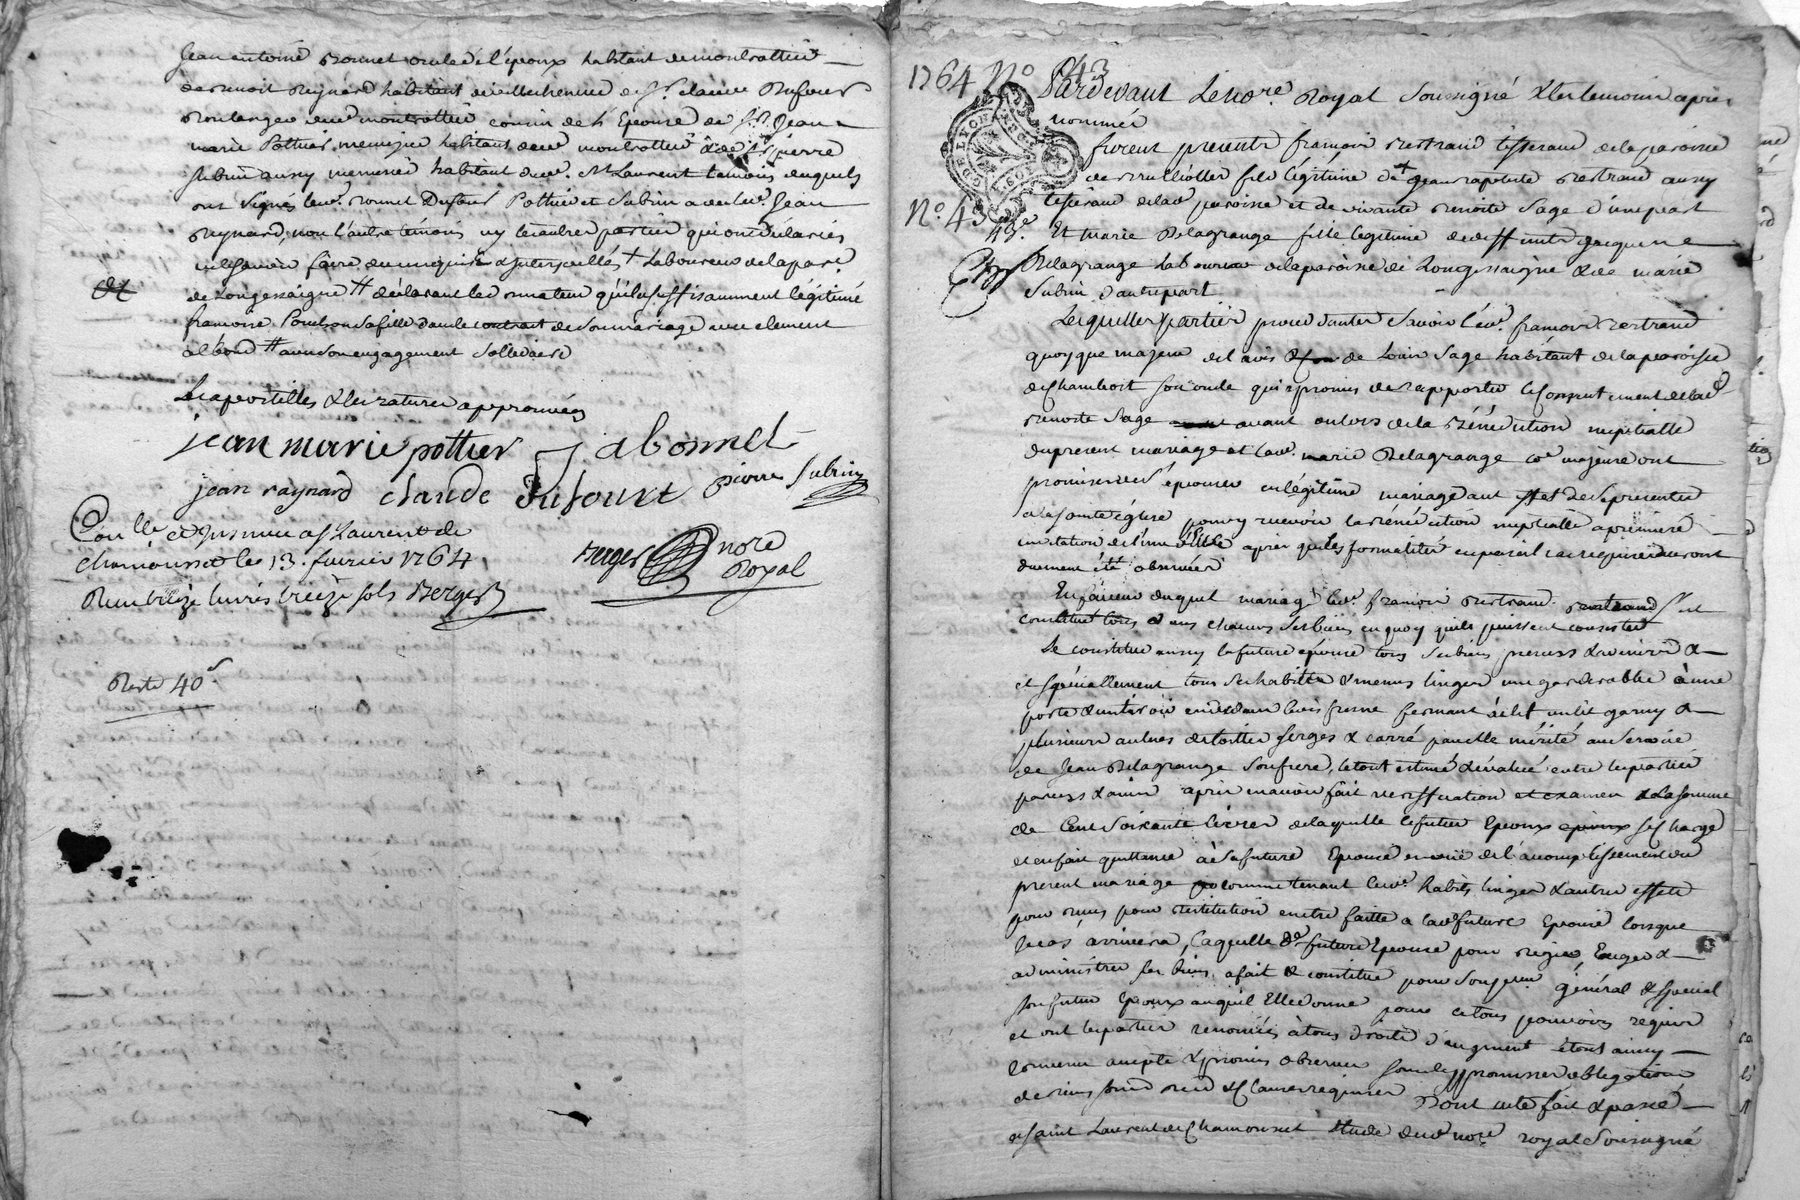 Jean antoine Bonnet oncle de l'epoux habitant de montrottier
de benoit Reynard habitant de villechenève de Sr. claude Dufour
Boulanger de montrottier cousin de l'Epouse de Sr. Jean
marie Pottier menuzier habitant dud. montrottier & de Sr. pierre
Subrin aussy menuzier habitant dud. St Laurent temoins lesquels
ont signés led. bonnet Dufour Pottier et Subrin avec led. Jean
Reynard, non l'autre témoin ny les autres parties qui ont déclarés
ne sçavoir faire de ce enquis & interpellés + Laboureur de la par.
de Longessaigne # déclarant led. donnateur qu'il a suffisamment légitimé
francoise Ponchon sa fille dans le contrat de son mariage avec clement
# avec son engagement sollidaire
Les apostilles & les ratures approuvées
jean marie pottier J a bonnet
jean raynard claude dufourt pierre Subrin
Con.lle et Insinué a St Laurent de
chamousset le 13. fevrier 1764
Reçu treize livres treize sols Berger
Berger nore
Royal
Reste 40 s
1764 No. 43
Pardevant Le no.re Royal Soussigné & les temoins après
nommés
furent presents francois Bertrand tisserand de la paroisse
de Brulliolles fils légitime de + Jean baptiste Bertrand aussy
tisserand de lad. paroisse et de vivante benoite Sage d'une part
No. 43
43e.
Et Marie Delagrange fille legitime de deffunt Jacques
Delagrange laboureur de la paroisse de Longessaigne & de marie
Subrin d'autre part
Lesquelles parties procedantes Savoir led. francois Bertrand
quoyque majeur de l'avis de Louis Sage habitant de la paroisse
de Chambost son oncle qui a promis de rapporter le consentement de lad.
benoite Sage avant ou lors de la Bénédiction nuptialle
du present mariage et lad. marie Delagrange co.e majeure ont
promis se epouser en légitime mariage aux effet de se presenter
a la sainte église pour y recevoir la bénédiction nuptialle a premiere
invitation de l'une d'elles après que les formalités en pareil cas requises auront
duement été observées
En faveur duquel mariage led. francois Bertrand s'est
constitué tous et uns chacuns ses biens en quoy qu'ils puissent consister
Se constitue aussy la future epouse tous ses biens presens & avenir &
et spécialement tous ses habitts & menus linges une garderobbe à une
porte & un tiroir au dedans bois fresne fermant à clef un lit garny &
plusieurs aulnes de toille serges & carré par elle mérité au service
de Jean Delagrange son frere, le tout estimé & évalué entre les parties
parens & amis après en avoir fait veriffication et examen & la somme
de Cent Soixante livres de laquelle le futur Epoux se charge
et en fait quittance à sa future Epouse en cas de l'acomplissement du
present mariage comme tenant lesd. habits linges & autres effets
pour reçus pour restitution en etre faitte a lad. future Epouse lorsque
le cas arrivera, laquelle d. future Epouse pour regir, Exiger &
administrer ses biens a fait & constitué pour son pr.eur général & special
son futur Epoux auquel Elle donne pour ce tous pouvoirs requis
et ont les parties renoncées à tous droits d'augment étant ainsy
convenu accepté & promis observer sous les promisses obligations
de biens renon. & clauses requises Dont acte fait & passé
a Saint Laurent de Chamousset Etude dud. no.re royal Soussigné